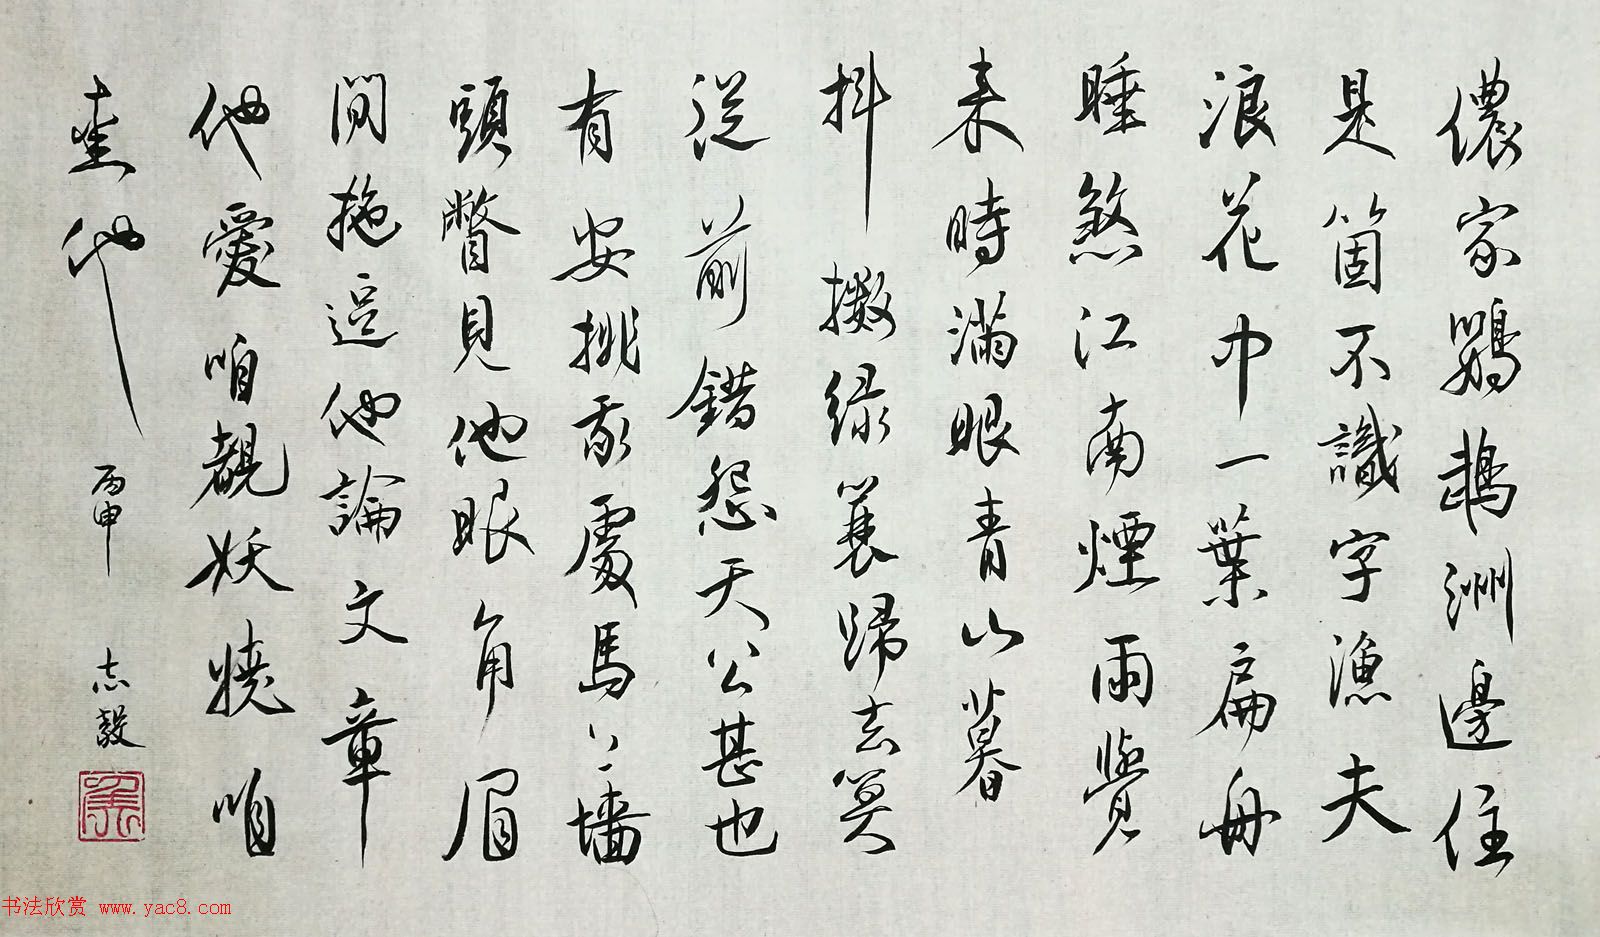 儂家鸚鵡洲邊住
是箇不識字漁夫
浪花中一葉扁舟
睡煞江南煙雨覺
来時滿眼青山暮
抖擻綠蓑歸去算
從前錯怨天公甚也
有安排我處馬上墻
頭瞥見他眼角眉
間拖逗他論文章
他愛咱覩妖嬈咱
愛他
丙申 志毅
书法欣赏 www.yac8.com